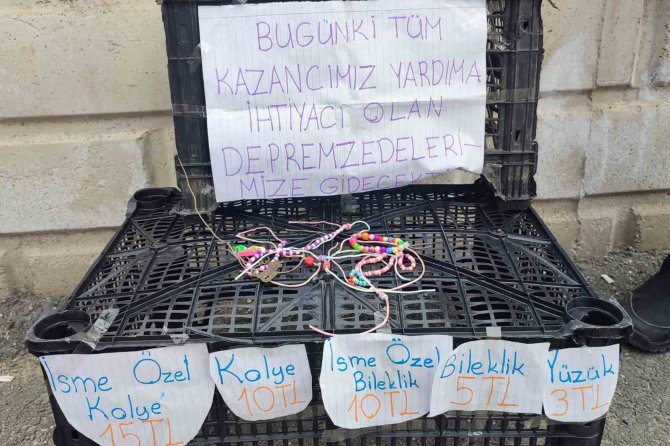 BUGÜNKİ TÜM
KAZANCIMIZ YARDIMA
İHTİYACI OLAN
DEPREMZEDELERİ-
MİZE GİDECEKTİ
İsme Özel
Kolye
15TL
Kolye
10TL
İsme Özel
Bileklik
10TL
Bileklik
5TL
Yüzük
3TL